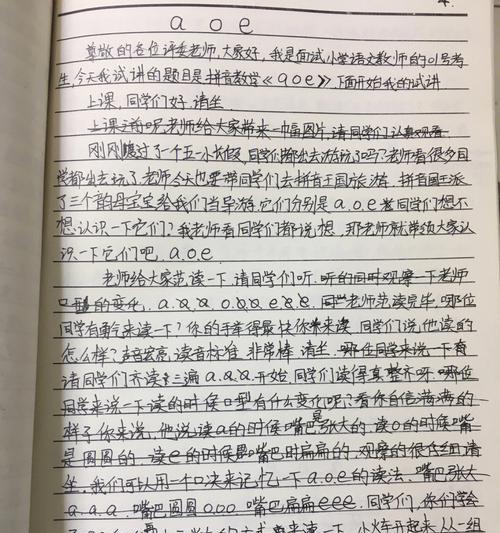 4.
a o e
尊敬的各位评委老师,大家好,我是面试小学语文教师的01号考
生,今天我试讲的题目是拼音教学《aoe》,下面开始我的试讲
上课,同学们好,请坐.
上课之前呢,老师给大家带来一幅图片,请同学们认真观看
刚刚度过了一个五一小长假,同学们都出去游玩了吗?老师看很多同
学都出去玩了,老师今天也要带同学们去拼音王国旅游,拼音国王派
了三个韵母宝宝给我们当导游,它们分别是a.o.e 老同学们想不
想认识一下它们?我老师看同学们都说想,那老师就带领大家认
识一下它们吧,a.o.e
老师给大家范读一下,请同学们听,听的同时观摩一下老师
口型的变化,a.a.a o.o.o e.e.e 老师范读完毕,哪位
同学有勇气来读一下?你的手举得最快你来读,同学们说,他读的
怎么样?声音宏亮,读音标准,非常棒,请坐.哪位同学来说一下
请同学们齐读三遍 a.a.a.开始,同学们读得真整齐呀,哪位
同学来说一下读的时候口型有什么变化呢?看你自信满满的
样子你来说,他说读a的时候嘴巴是张大的,读o的时候嘴
是圆圆的,读e的时候嘴巴时扁扁的,观摩的很仔细,请
坐,我们可以用一个口决来记忆一下a.o.e的读法,嘴巴张大
a.a.a,嘴巴圆圆o.o.o,嘴巴扁扁eee,同学们,你们学会
来读一下,小火车开起来,从一组